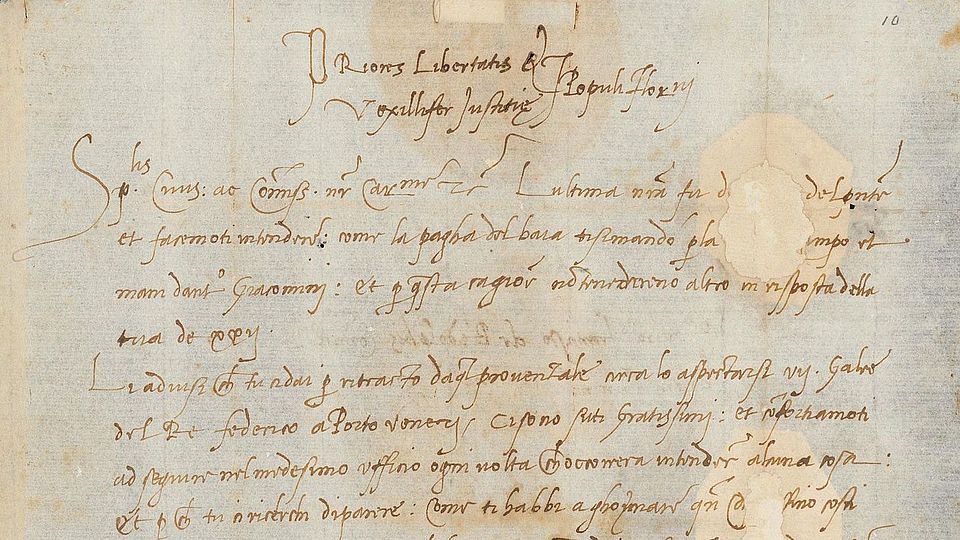 10
PRiores Libertatis &
Vexillifer Justitie
Populi Flor.ij
Sp.lis Civis: ac Com̄iss. nr̄ Car.me etc̄ L ultima nr̄a fu del p̄nte
et facemoti intendere: come la pagha del baia ti si mando p la et
mani d ant.o Giacomini: et p q̄sta cagione nō tenedireno altro in risposta della
tua de xxij.
Li advisi ch̄ tu ci dai p ritracto da q̄l proventiale circa lo aspectarsi vij. Galee
del Re federico a Porto veneri, Ci sono suti gratissimi: et cōfortiamoti
ad seguire nel medesimo ufficio ogni volta ch̄ occorrera intendere alcuna cosa:
Et p ch̄ tu ci ricerchi di parere: Come ti habbi a ghovnare qn̄ cosi